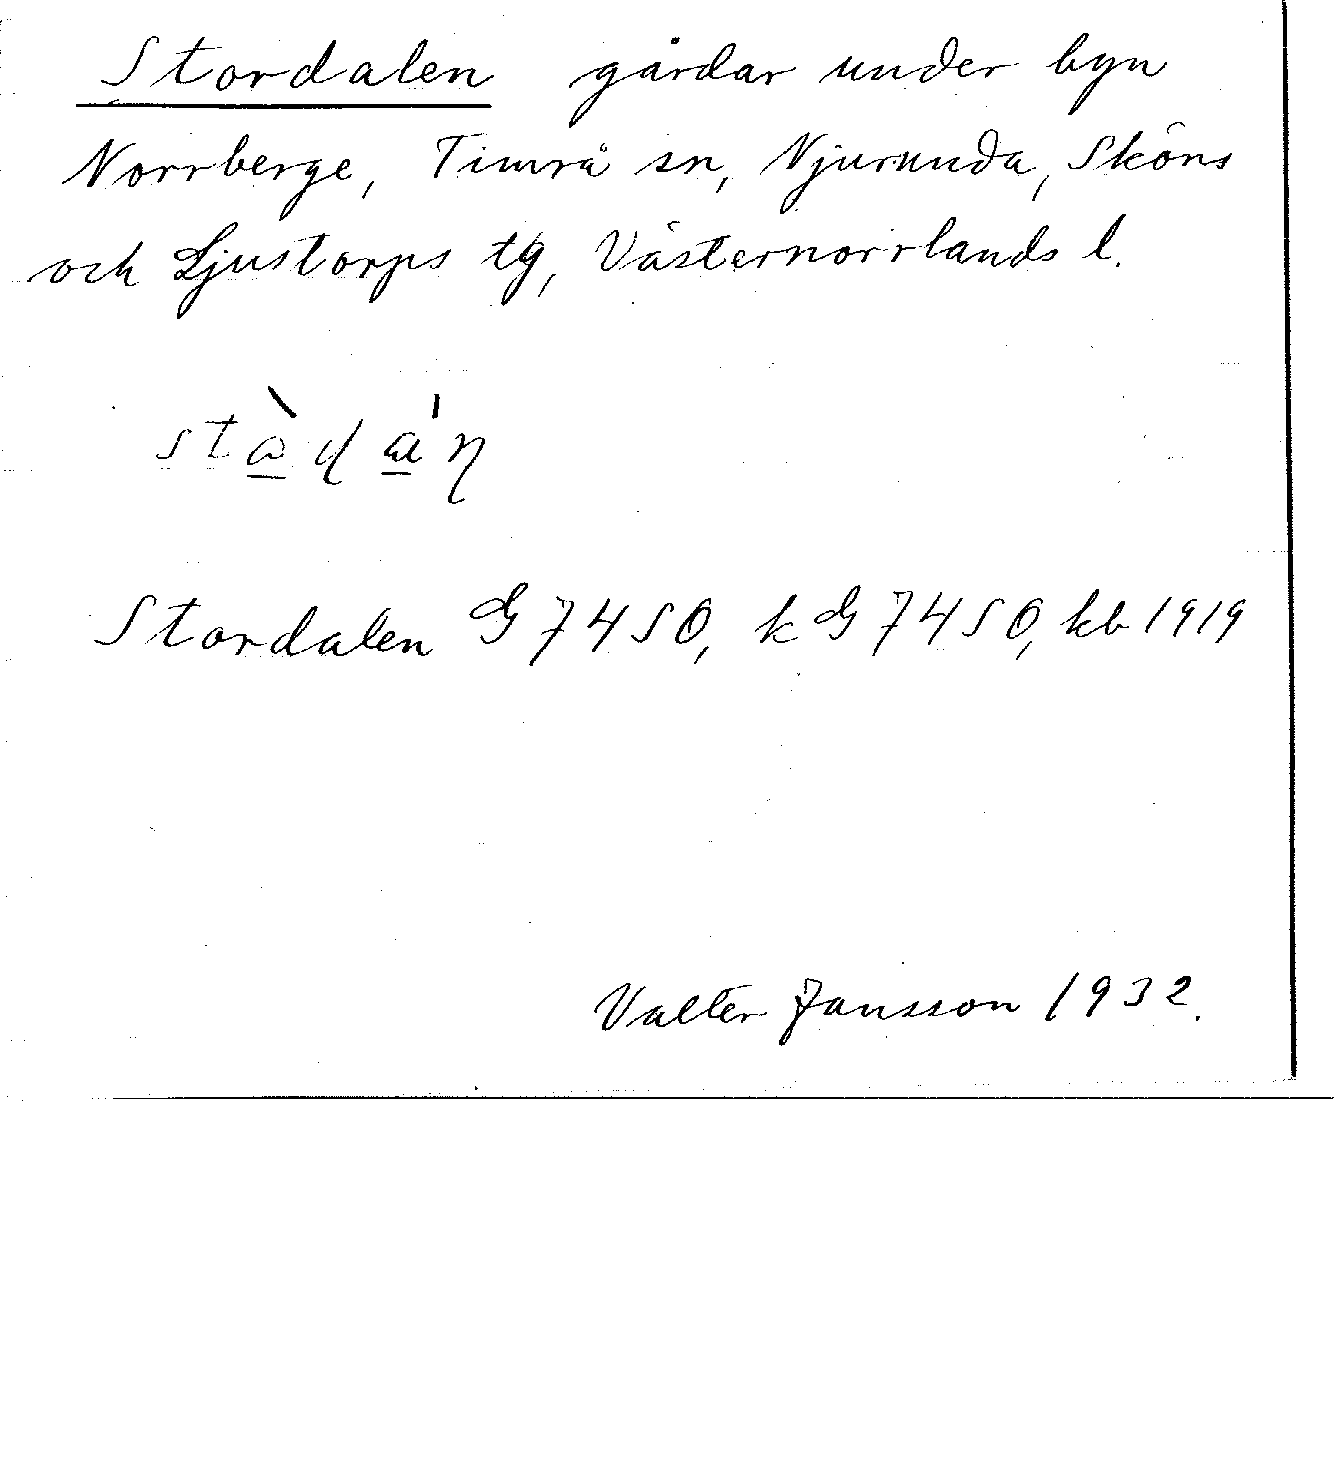 Stordalen gårdar under byn
Norrberge, Timrå sn, Njurunda, Sköns
och Ljustorps tg, Västernorrlands l.
Stordalen G 7450, k G 7450, kb 1919
Valter Jansson 1932.